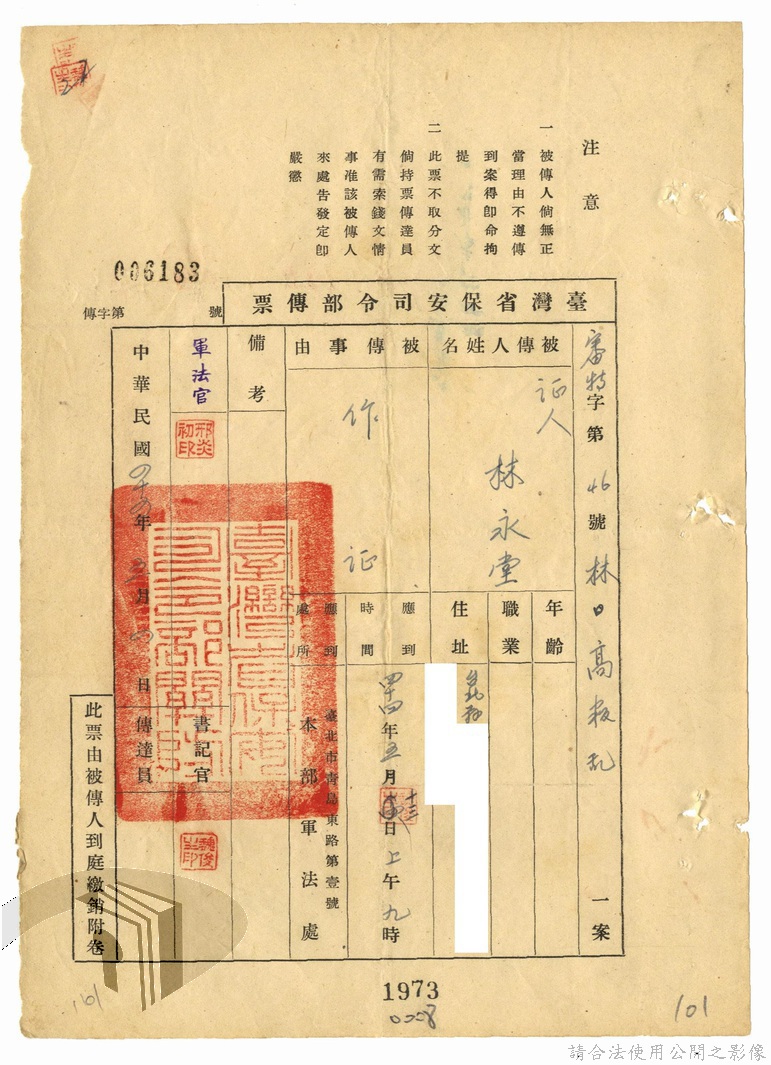 注意
一 被傳人倘無正
當理由不遵傳
到案得卽命拘
提
二 此票不取分文
倘持票傳達員
有需索錢文情
事准該被傳人
來處告發定卽
嚴懲
006183
傳字第 號
臺灣省保安司令部傳票
審特字第46號林日高叛乱一案
被傳人姓名
证人
林永堂
年齡
職業
住址
台北縣
被傳事由
作证
應到時間
四四年五月十三日上午九時
應到處所
臺北市靑島東路第壹號
本部軍法處
備考
軍法官
邢炎初印
書記官
中華民國四十四年五月 日
傳達員
臺灣省保安司令部關防
此票由被傳人到庭繳銷附卷
1973
0008
101
101
請合法使用公開之影像